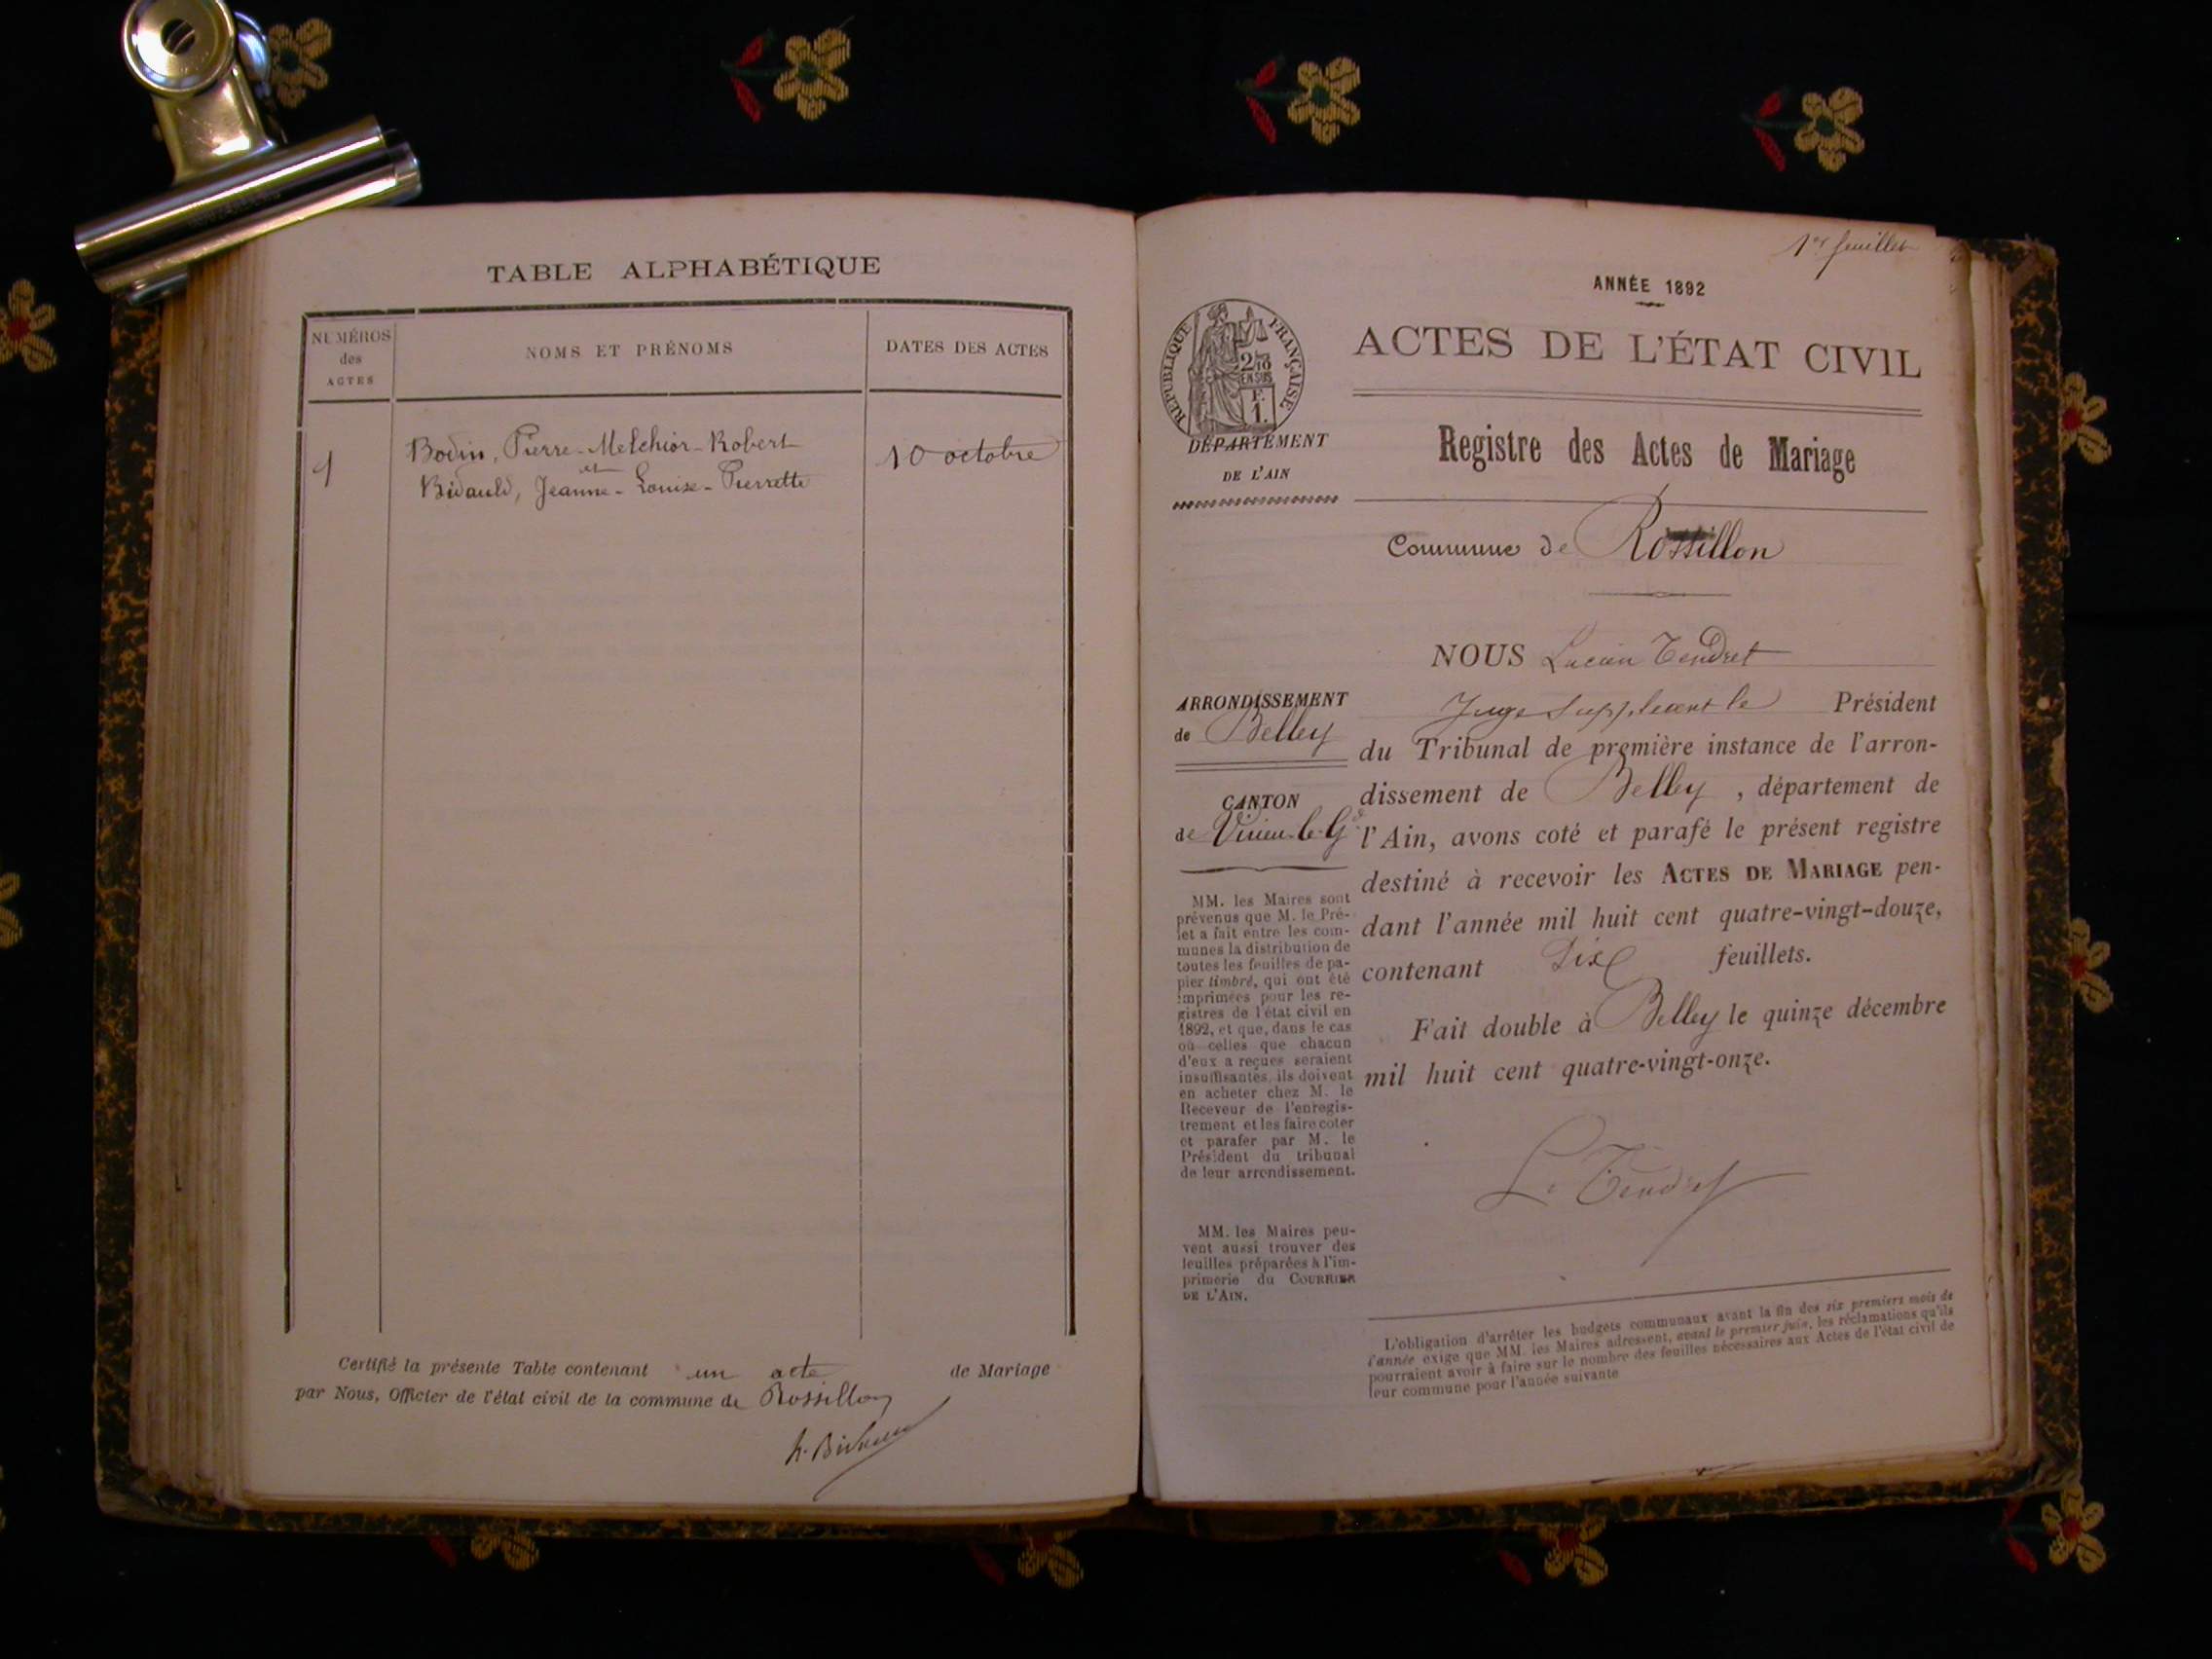 TABLE ALPHABÉTIQUE
NUMÉROS
des
ACTES
NOMS ET PRÉNOMS
DATES DES ACTES
1
Bodin, Pierre-Melchior-Robert
et
Bidauld, Jeanne-Louise-Pierrette
10 octobre
Certifié la présente Table contenant un acte de Mariage
par Nous, Officier de l'état civil de la commune de Rossillon
1er feuillet
ANNÉE 1892
RÉPUBLIQUE FRANÇAISE
2/10
EN SUS
F.
1.
DÉPARTEMENT
DE L'AIN
ACTES DE L'ÉTAT CIVIL
Registre des Actes de Mariage
Commune de Rossillon
ARRONDISSEMENT
de Belley
CANTON
de Virieu-le-Gd
MM. les Maires sont
prévenus que M. le Pré-
fet a fait entre les com-
munes la distribution de
toutes les feuilles de pa-
pier timbré, qui ont été
imprimées pour les re-
gistres de l'état civil en
1892, et que, dans le cas
où celles que chacun
d'eux a reçues seraient
insuffisantes, ils doivent
en acheter chez M. le
Receveur de l'enregis-
trement et les faire coter
et parafer par M. le
Président du tribunal
de leur arrondissement.
MM. les Maires peu-
vent aussi trouver des
feuilles préparées à l'im-
primerie du COURRIER
DE L'AIN.
NOUS Lucien Tendret
Juge Suppléant le Président
du Tribunal de première instance de l'arron-
dissement de Belley, département de
l'Ain, avons coté et parafé le présent registre
destiné à recevoir les ACTES DE MARIAGE pen-
dant l'année mil huit cent quatre-vingt-douze,
contenant Six feuillets.
Fait double à Belley le quinze décembre
mil huit cent quatre-vingt-onze.
L. Tendret
L'obligation d'arrêter les budgets communaux avant la fin des six premiers mois de
l'année exige que MM. les Maires adressent, avant le premier juin, les réclamations qu'ils
pourraient avoir à faire sur le nombre des feuilles nécessaires aux Actes de l'état civil de
leur commune pour l'année suivante